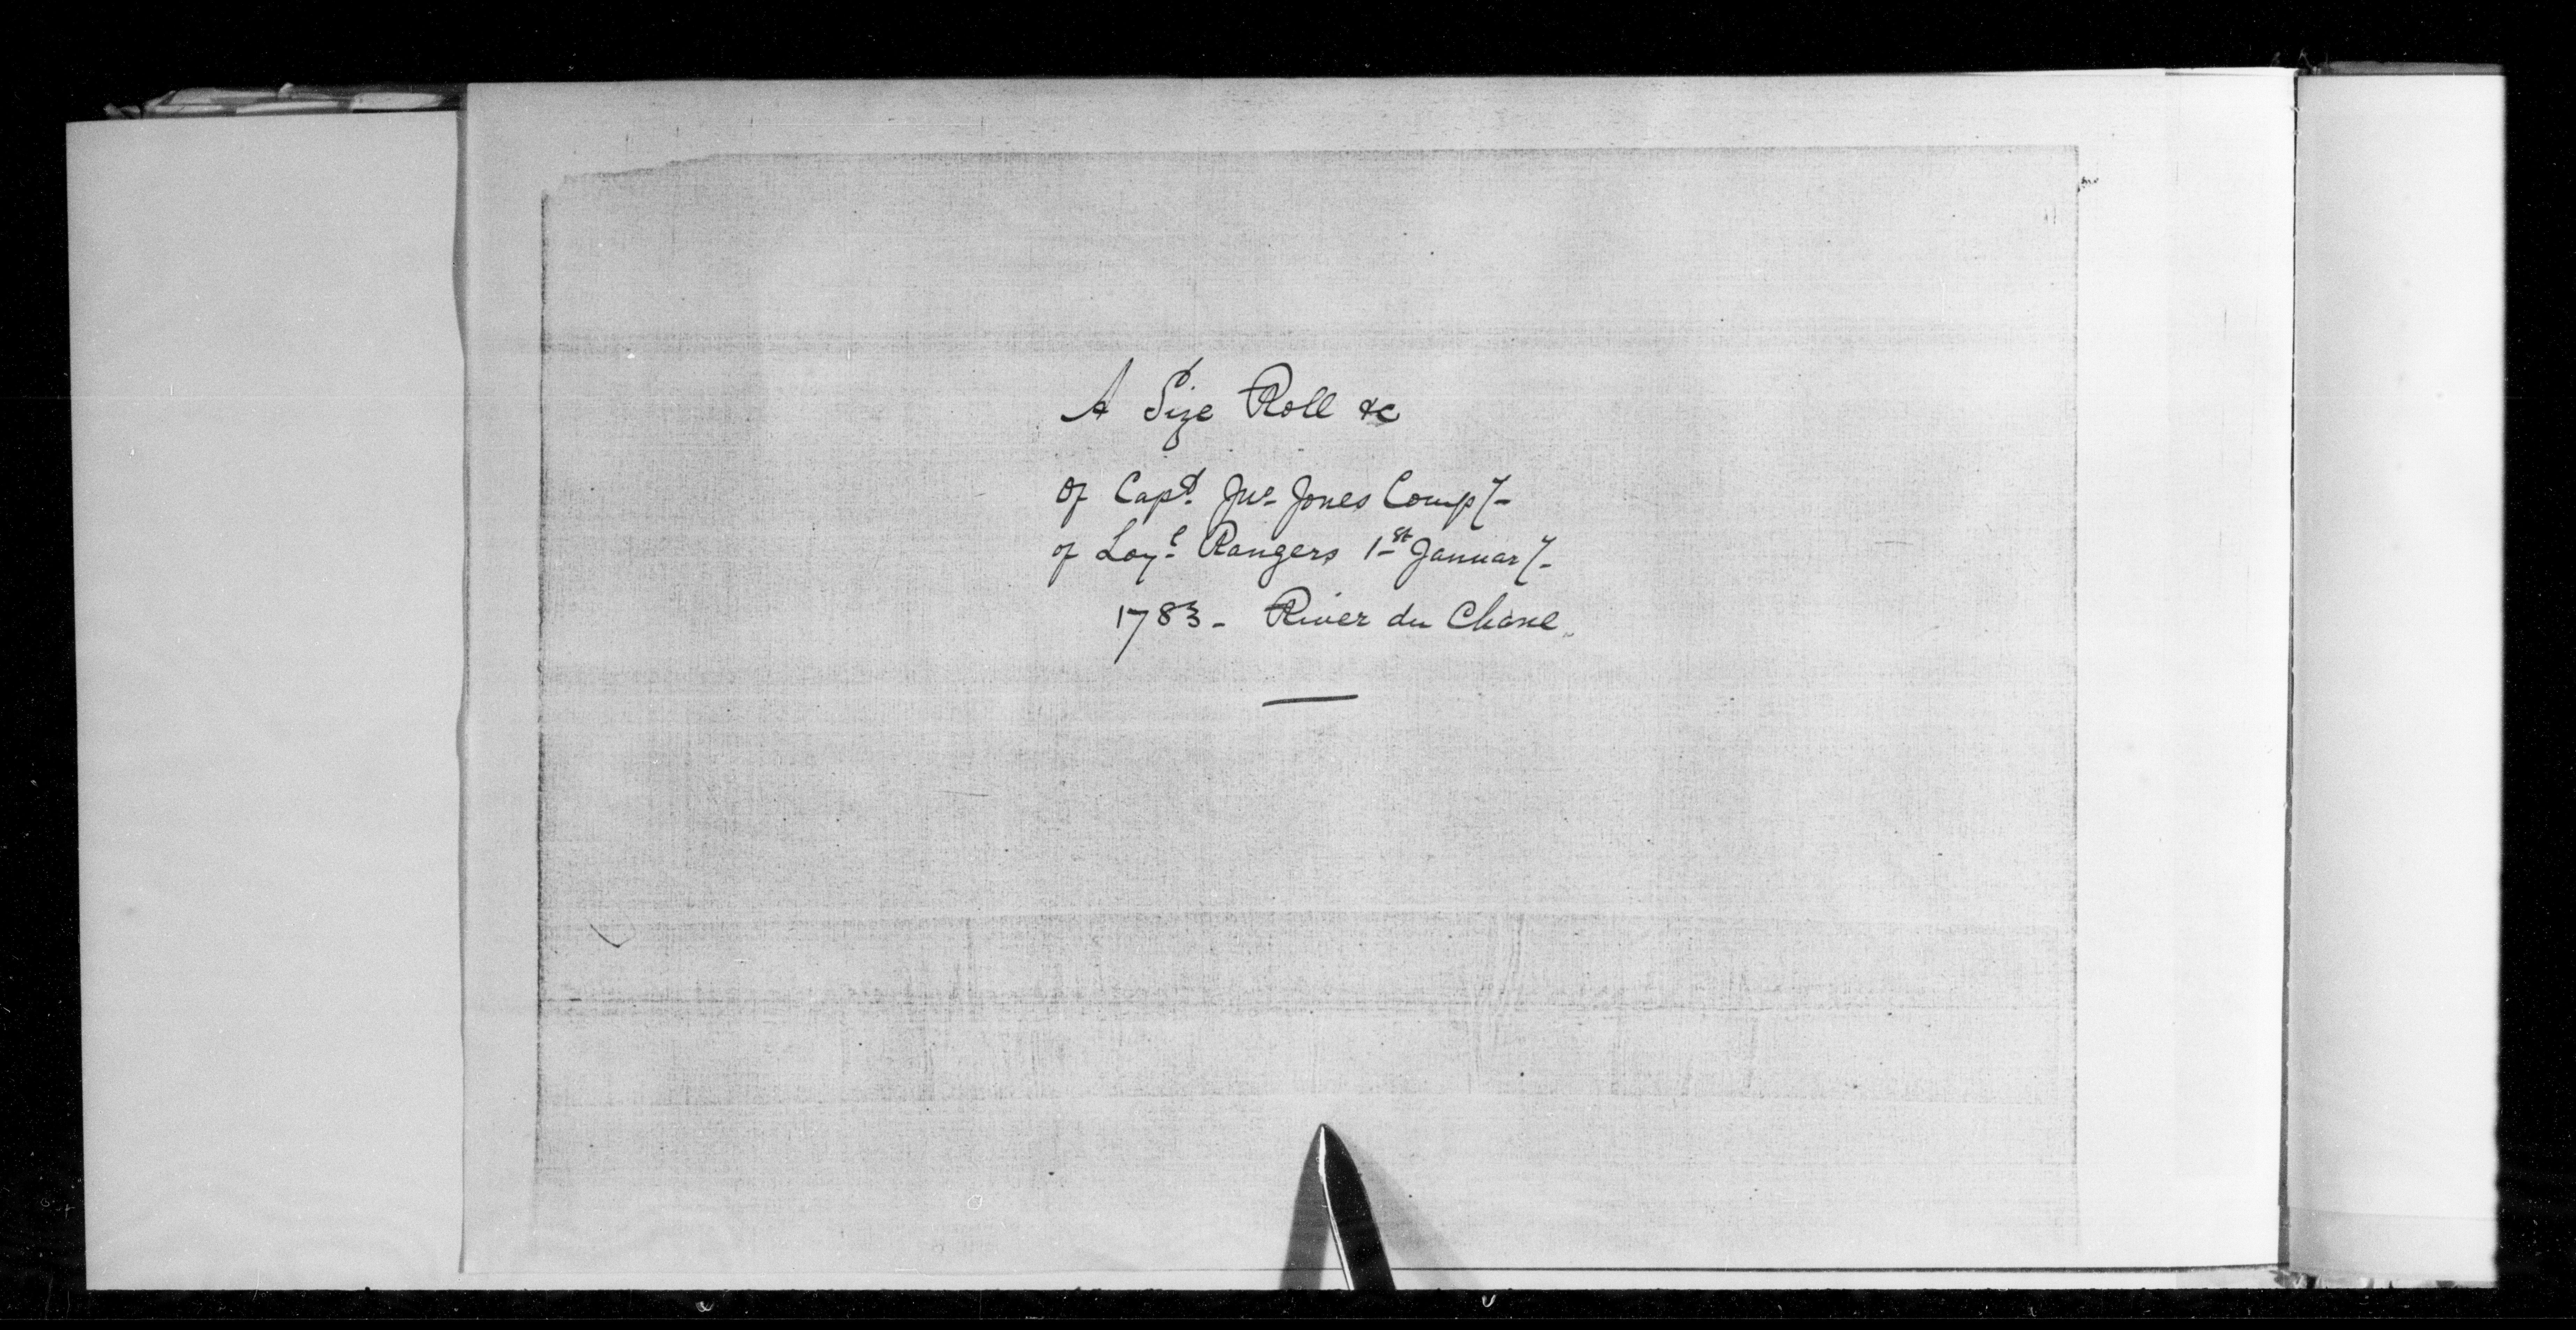 A Size Roll &c
Of Capt. Jno. Jones Compy
of Loyl. Rangers 1st January
1783 - River du Chane